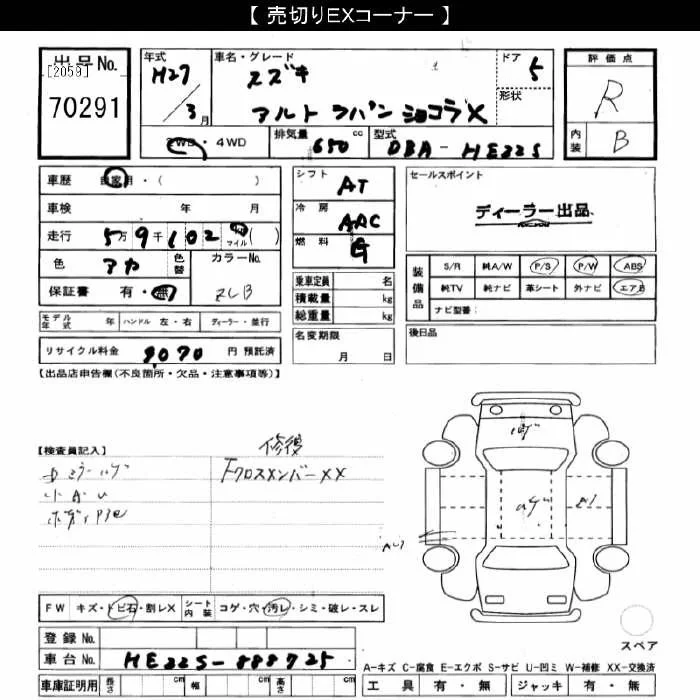 【 売切りEXコーナー 】
出品No.
[2059]
70291
年式 H27 / 3 月
車名・グレード スズキ
アルト ラパン ショコラX
ドア 5
形状
評価点 R
内装 B
2WD・4WD
排気量 650 cc
型式 DBA-HE22S
車歴 自家用・( )
車検 年 月
走行 5万9千102 km マイル ( )
色 アカ 色替
カラーNo. ZLB
保証書 有・無
モデル年式 年 ハンドル 左・右 ディーラー・並行
リサイクル料金 9070 円 預託済
シフト AT
冷房 AAC
燃料 G
乗車定員 名
積載量 kg
総重量 kg
名変期限
月 日
セールスポイント
ディーラー出品
装備品
S/R 純A/W P/S P/W ABS
純TV 純ナビ 革シート 外ナビ エアB
ナビ型番:
後日品
【出品店申告欄(不良箇所・欠品・注意事項等)】
【検査員記入】
修復
Fクロスメンバーxx
小AU
A-キズ C-腐食 E-エクボ S-サビ U-凹ミ W-補修 XX-交換済
スペア
FW キズ・トビ石・割レX
シート内装 コゲ・穴・汚レ・シミ・破レ・スレ
登録No.
車台No. HE22S-888725
車庫証明用 長さ cm 幅 cm 高さ cm
工具 有・無 ジャッキ 有・無